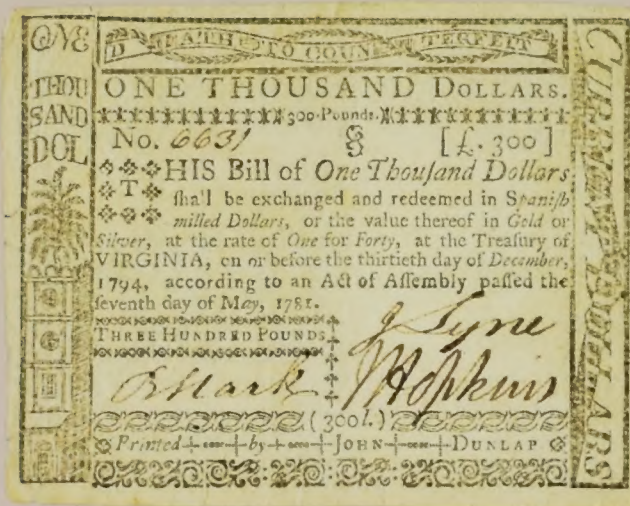 DEATH TO COUNTERFEIT
ONE
THOU
SAND
DOL
ONE THOUSAND DOLLARS.
300 Pounds.
No. 6631 [£. 300]
THIS Bill of One Thouſand Dollars
ſhall be exchanged and redeemed in Spaniſh
milled Dollars, or the value thereof in Gold or
Silver, at the rate of One for Forty, at the Treaſury of
VIRGINIA, on or before the thirtieth day of December,
1794, according to an Act of Aſſembly paſſed the
ſeventh day of May, 1781.
THREE HUNDRED POUNDS
J Lyne
J Hopkins
(300l.)
Printed by JOHN DUNLAP